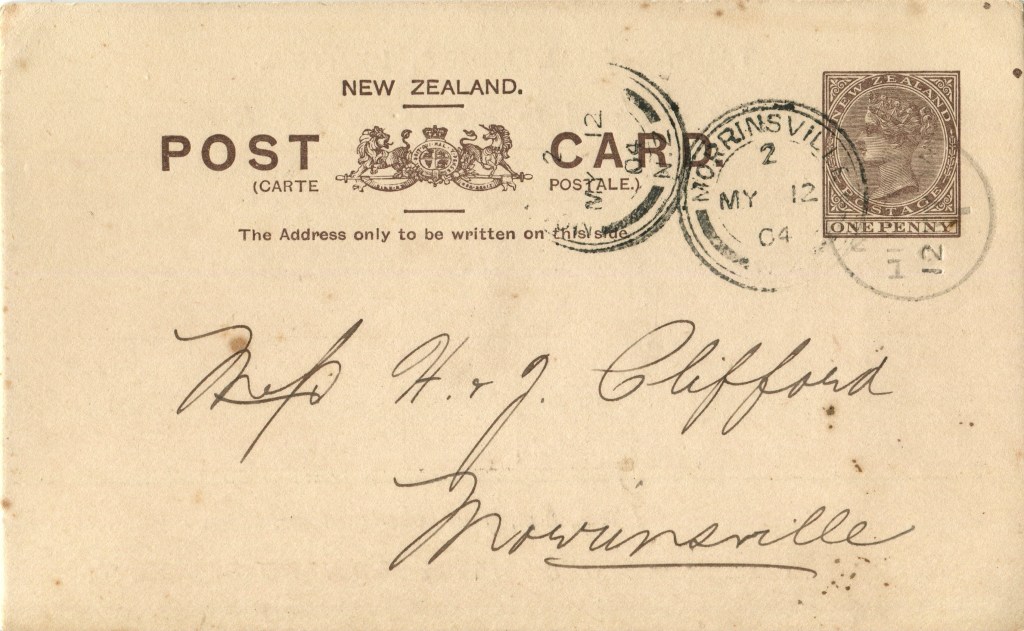 NEW ZEALAND.
POST CARD
(CARTE POSTALE.)
The Address only to be written on this side.
MY 12
04
N.Z
2
MORRINSVILLE
2
MY 12
04
NEW ZEALAND
POSTAGE
ONE PENNY
1
12
Mess H. & J. Clifford
Morrinsville